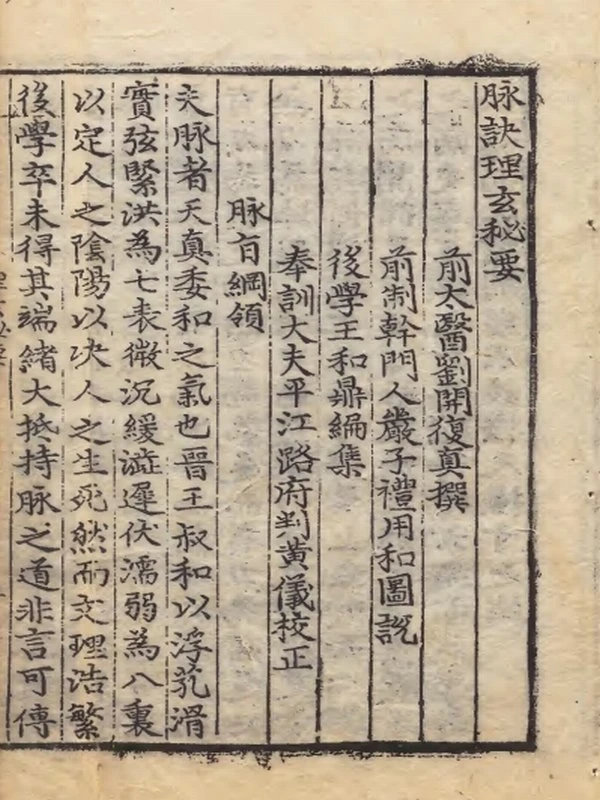 脉訣理玄秘要
前太醫劉開復真撰
前制幹門人嚴子禮用和圖說
後學王和鼎編集
奉訓大夫平江路府判黄儀校正
脉㫖綱領
夫脉者天真委和之氣也晉王叔和以浮芤滑
實弦緊洪為七表微沉緩澁遲伏濡弱為八裏
以定人之隂陽以决人之生死然而文理浩繁
後學卒未得其端緒大抵持脉之道非言可傳